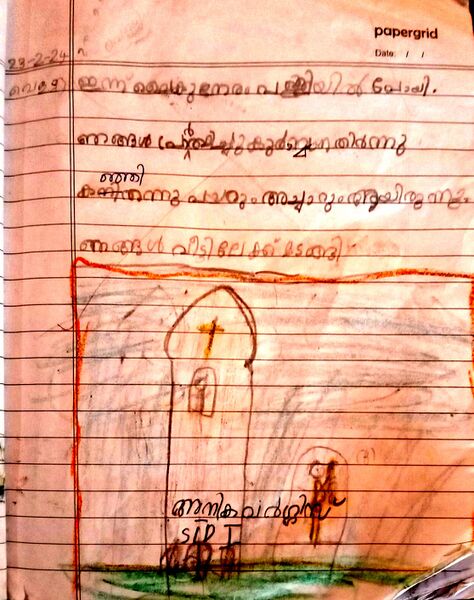 papergrid
Date: / /
23-2-24
വെള്ളി ഇന്ന് വൈകുന്നേരം പള്ളിയിൽ പോയി.
ഞങ്ങൾ പ്രാർത്ഥിച്ചു കുർബ്ബാന തീർന്നു
കഞ്ഞി തന്നു പയറും അച്ചാറും ആയിരുന്നു
ഞങ്ങൾ വീട്ടിലേക്ക് മടങ്ങി
അനിക വർഗ്ഗീസ്
STD I